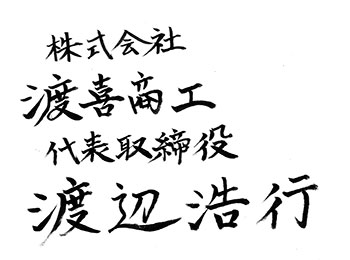 株式会社
渡喜商工
代表取締役
渡辺浩行